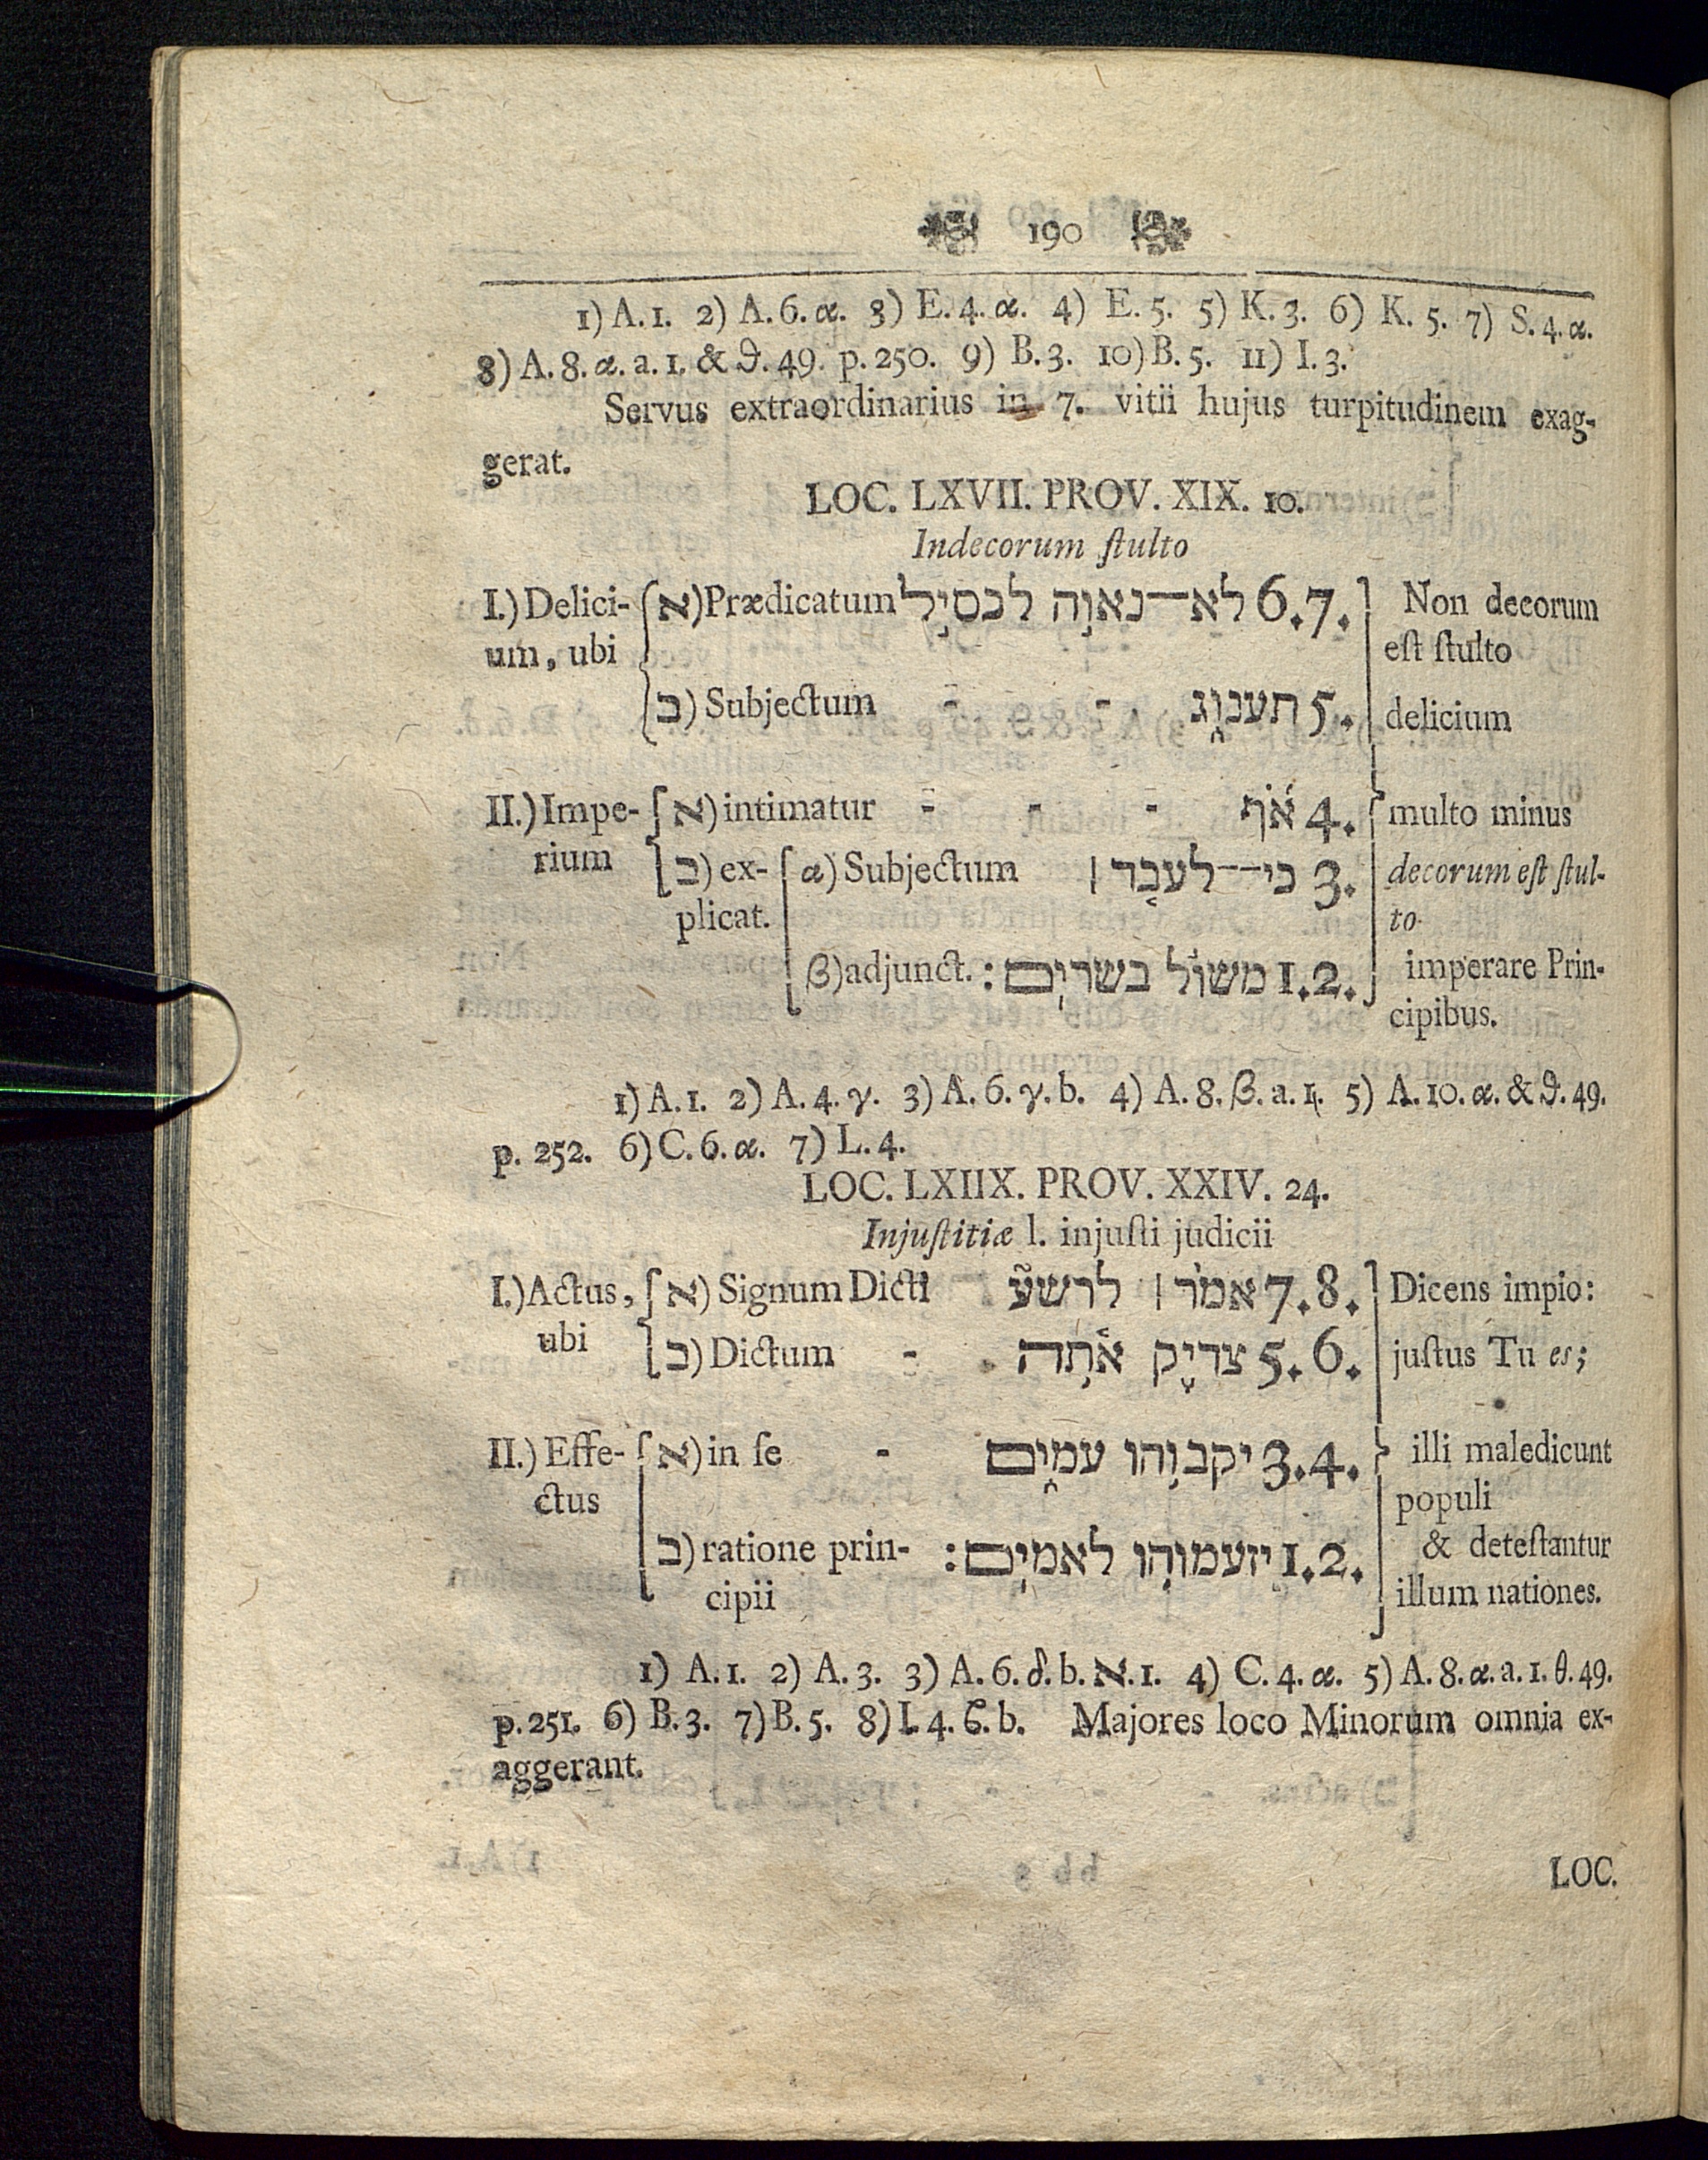 190
1) A. 1. 2) A. 6. α. 3) E. 4. α. 4) E. 5. 5) K. 3. 6) K. 5. 7) S. 4. α.
8) A. 8. α. a. 1. & ϑ. 49. p. 250. 9) B. 3. 10) B. 5. 11) I. 3.
Servus extraordinarius in 7. vitii hujus turpitudinem exag-
gerat.
LOC. LXVII. PROV. XIX. 10.
Indecorum ſtulto
I.) Delici- א) Prædicatum לא—נאוה לכסיל 6.7. Non decorum
um, ubi eſt ſtulto
ב) Subjectum - - תענוג 5. delicium
II.) Impe- א) intimatur - - - אף 4. multo minus
rium ב) ex- α) Subjectum כי—לעבד׀ 3. decorum eſt ſtul-
plicat. to
β) adjunct. משול בשרים: 1.2. imperare Prin-
cipibus.
1) A. 1. 2) A. 4. γ. 3) A. 6. γ. b. 4) A. 8. β. a. 1. 5) A. 10. α. & ϑ. 49.
p. 252. 6) C. 6. α. 7) L. 4.
LOC. LXIIX. PROV. XXIV. 24.
Injuſtitiæ l. injuſti judicii
I.) Actus, א) Signum Dicti אמר׀ לרשע 7.8. Dicens impio:
ubi ב) Dictum - צדיק אתה 5.6. juſtus Tu es;
II.) Effe- א) in ſe - יקבוהו עמים 3.4. illi maledicunt
ctus populi
ב) ratione prin- יזעמוהו לאמים: 1.2. & deteſtantur
cipii illum nationes.
1) A. 1. 2) A. 3. 3) A. 6. δ. b. א. 1. 4) C. 4. α. 5) A. 8. α. a. 1. θ. 49.
p. 251. 6) B. 3. 7) B. 5. 8) I. 4. b. Majores loco Minorum omnia ex-
aggerant.
LOC.